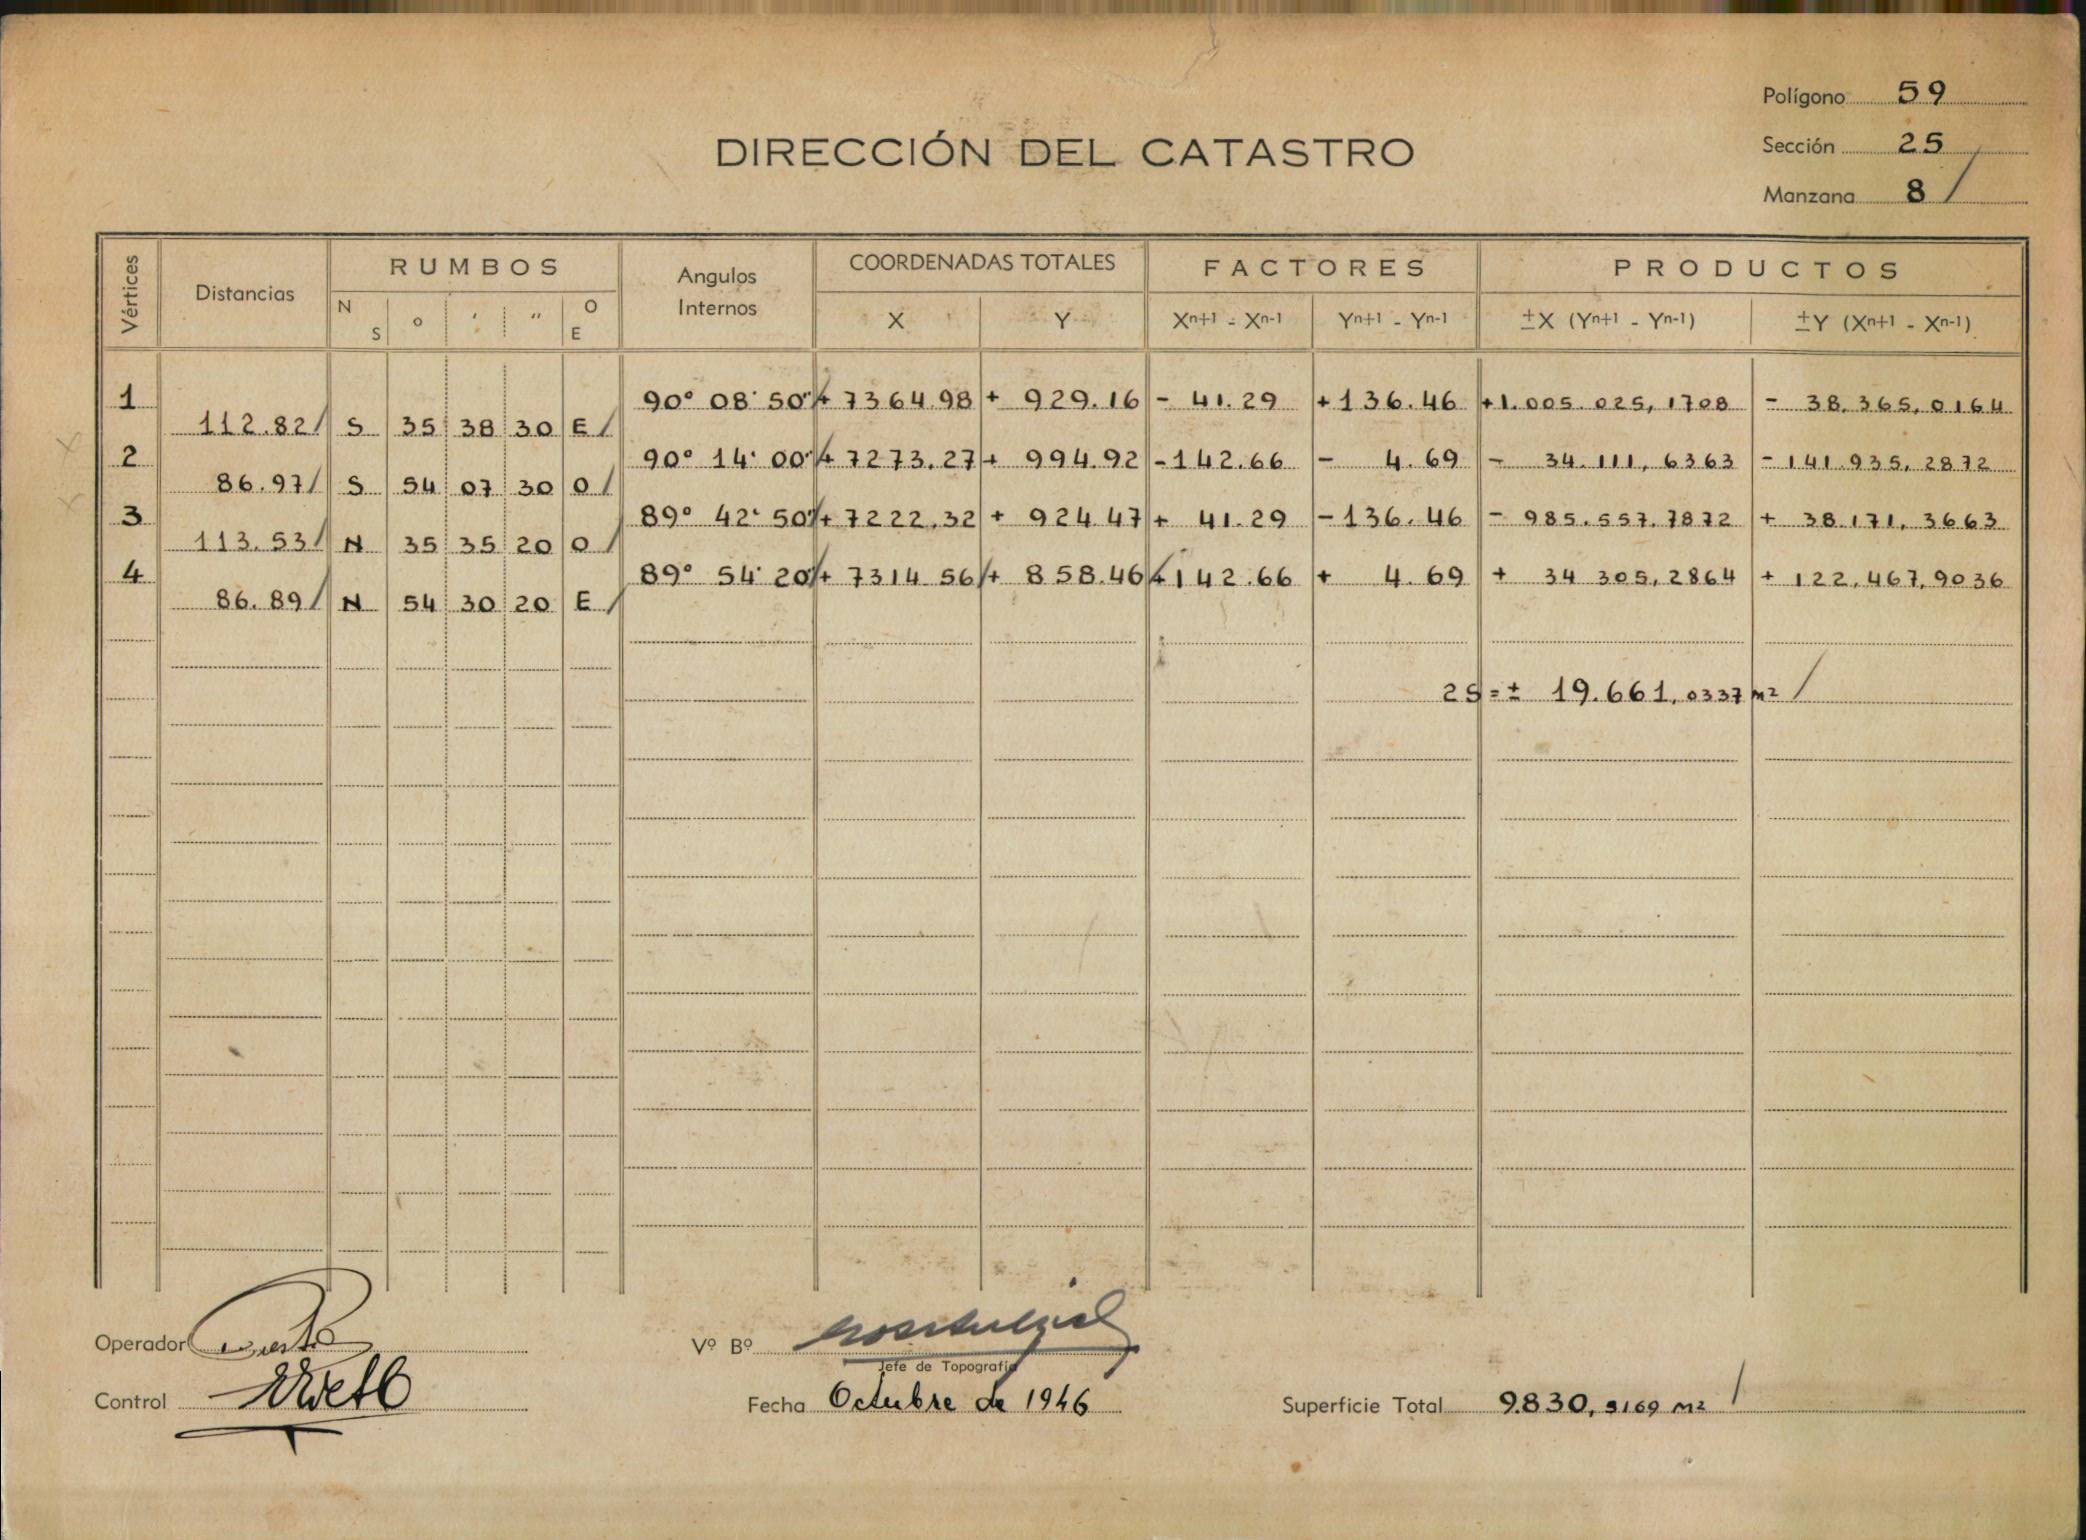 Polígono 59
DIRECCIÓN DEL CATASTRO
Sección 25
Manzana 8 /
Vértices Distancias RUMBOS Angulos Internos COORDENADAS TOTALES FACTORES PRODUCTOS
N S ° ′ ″ O E X Y Xn+1 - Xn-1 Yn+1 - Yn-1 ±X (Yn+1 - Yn-1) ±Y (Xn+1 - Xn-1)
1 90° 08' 50" + 7364.98 + 929.16 - 41.29 +136.46 +1.005.025,1708 - 38.365,0164
112.82/ S 35 38 30 E/
2 90° 14' 00" + 7273.27 + 994.92 -142.66 - 4.69 - 34.111,6363 -141.935,2872
86.97/ S 54 07 30 O/
3 89° 42' 50" + 7222.32 + 924.47 + 41.29 -136.46 - 985.557,7872 + 38.171,3663
113.53/ N 35 35 20 O/
4 89° 54' 20" + 7314.56 + 858.46 +142.66 + 4.69 + 34 305,2864 + 122,467,9036
86.89/ N 54 30 20 E/
2S = ± 19.661,0337 m² /
Operador
Vº Bº
Jefe de Topografía
Control
Fecha Octubre de 1946
Superficie Total 9.830,5169 m² /